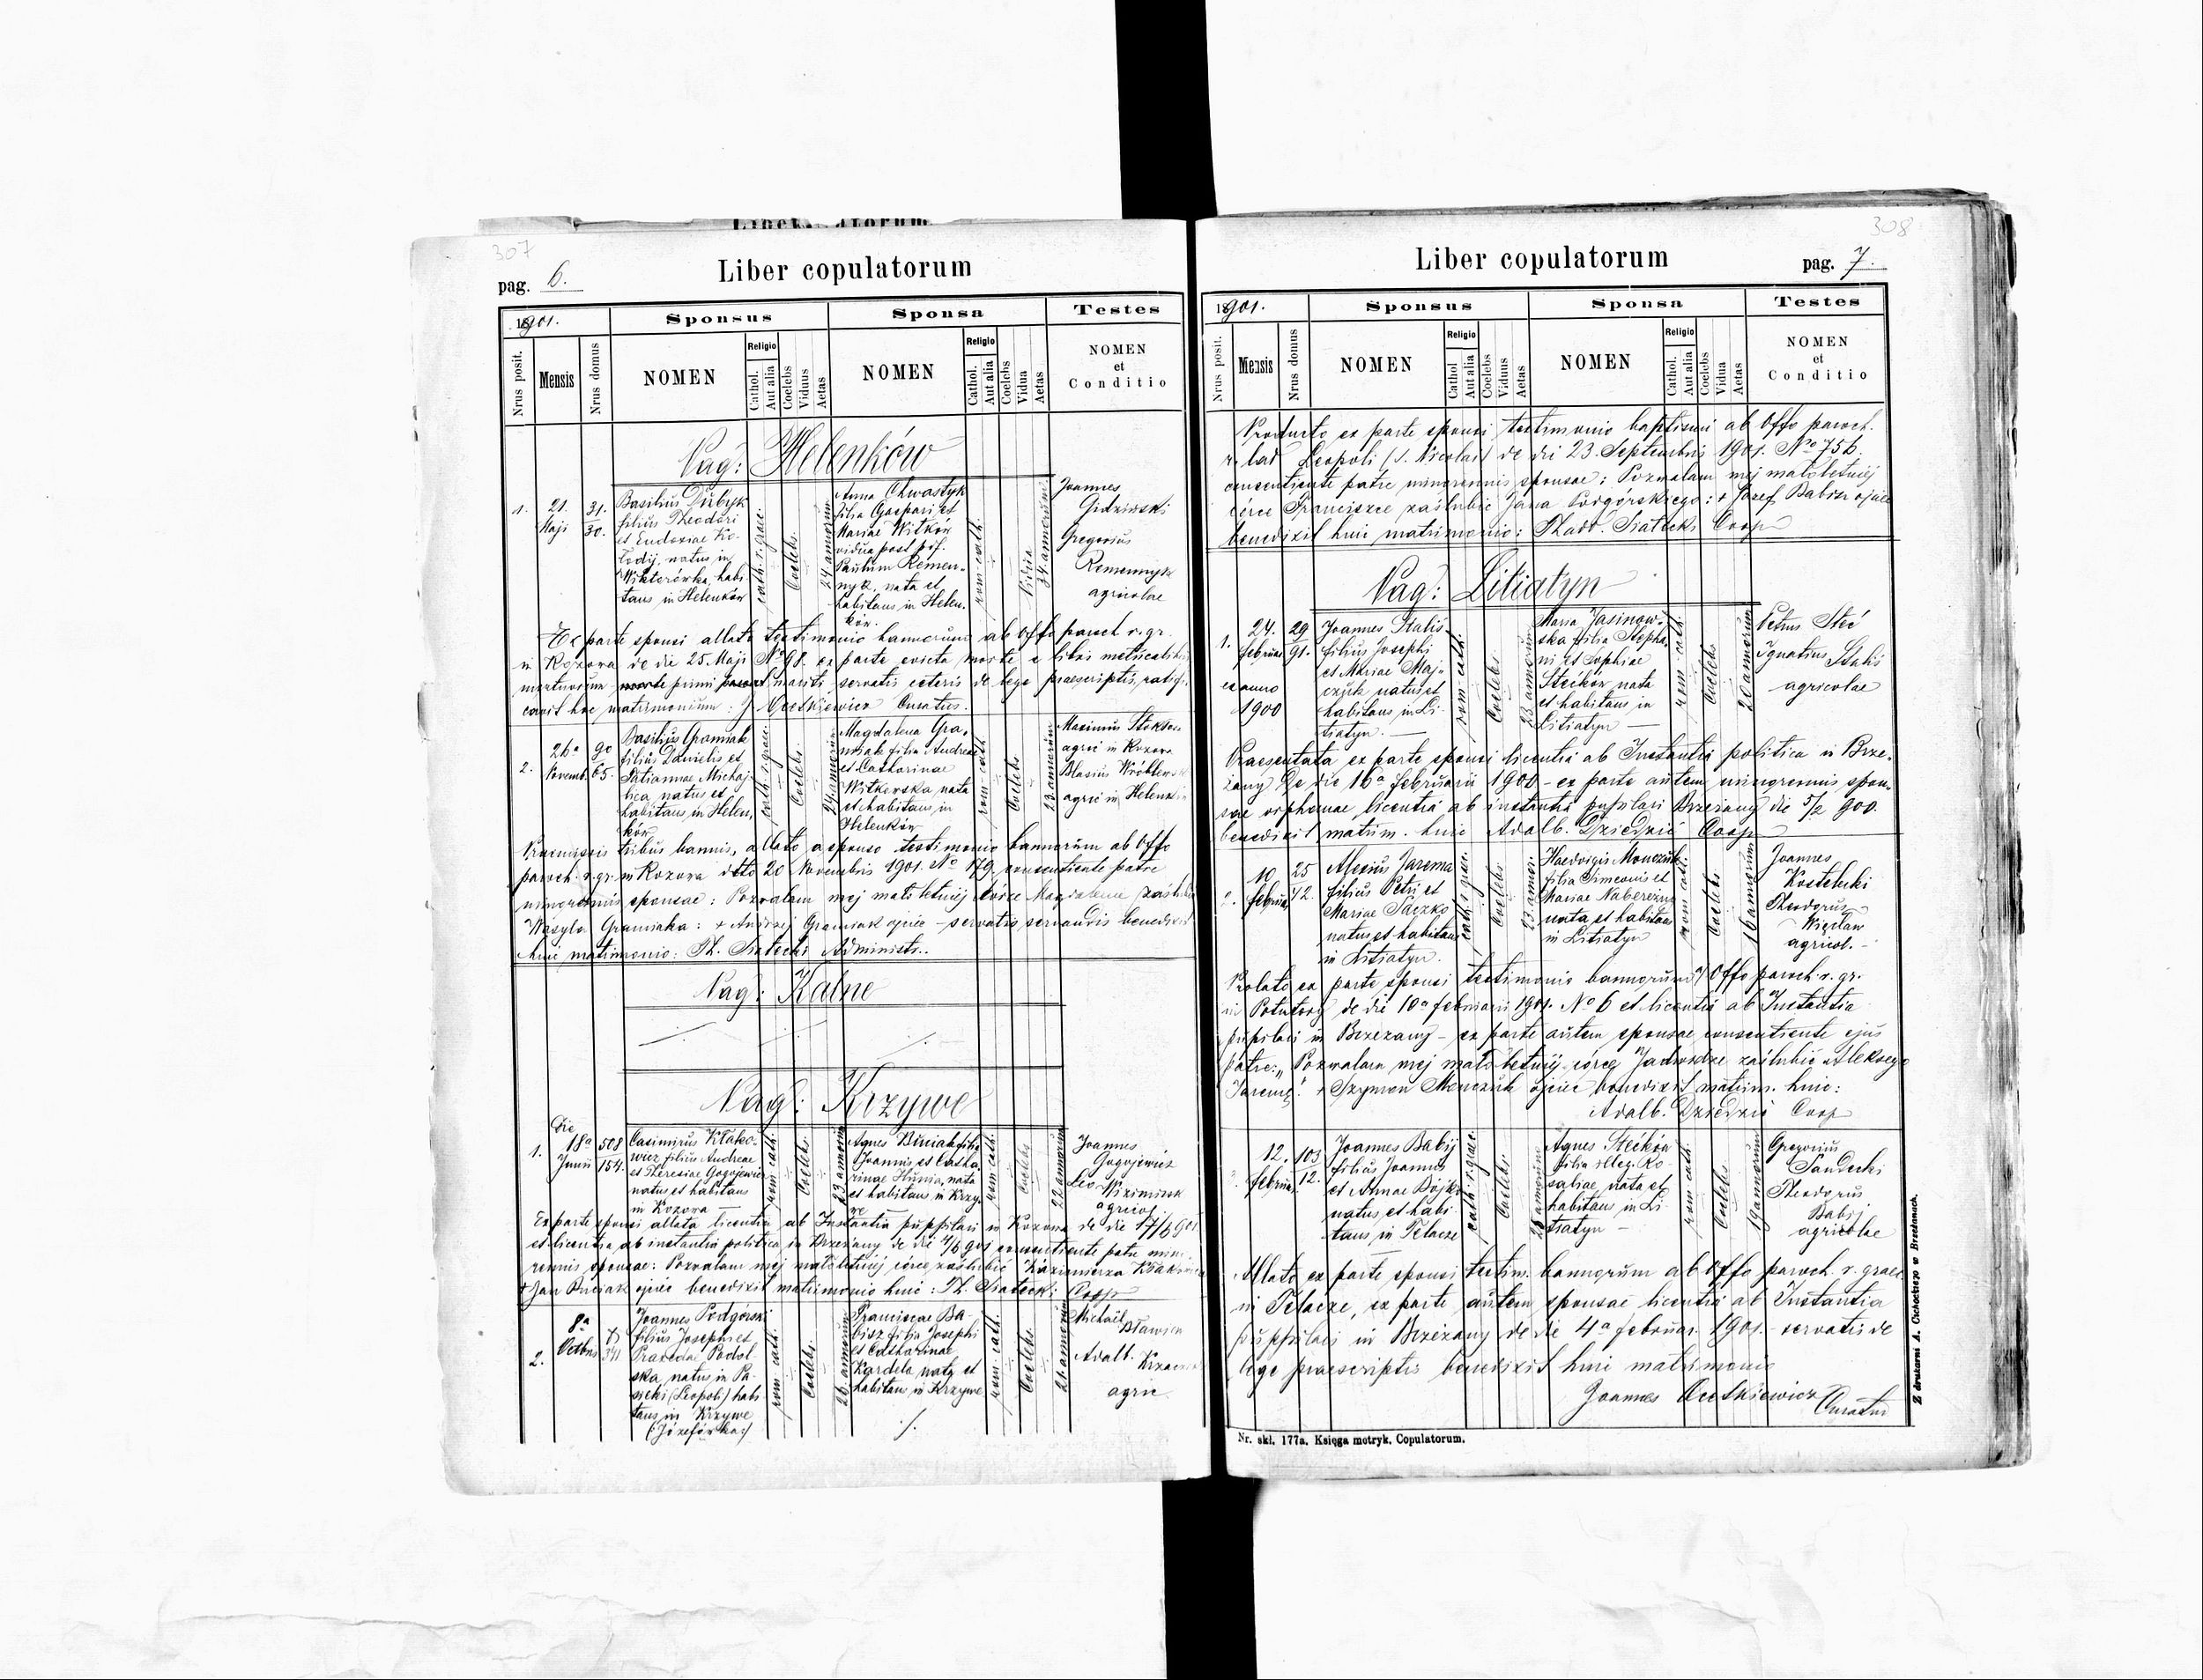 307
Liber copulatorum
pag. 6.
1901.
Sponsus
Sponsa
Testes
Nrus posit.
Mensis
Nrus domus
NOMEN
Religio
Cathol.
Aut alia
Coelebs
Viduus
Aetas
NOMEN
Religio
Cathol.
Aut alia
Coelebs
Vidua
Aetas
NOMEN
et
Conditio
Pag: Helenków
1.
21.
Maji
31.
30.
Basilius Dubyk
filius Theodori
et Eudoxiae Ko-
lodij, natus in
Wiktorówka, habi-
tans in Helenków
cath. r. graec.
Coelebs.
24 annorum
Anna Chwastyk
filia Gaspari et
Mariae Witków
vidua post def.
Paulum Remen-
nyk, nata et
habitans in Helen-
ków.
rom. cath.
Vidua
34 annorum
Joannes
Gidziński
Gregorius
Remennyk
agricolae
Ex parte sponsi allato testimonio bannorum ab Offo paroch r. gr.
in Kozowa de die 25 Maji No 98. ex parte evicta morte e libris metricalibus
mortuorum primi mariti servatis ceteris de lege praescriptis, ratifi-
cavit hoc matrimonium: J. Ocetkiewicz Curatus.
2.
26a
Novemb.
90
65.
Basilius Gramiak
filius Danielis et
Tatiannae Michaj-
lica, natus et
habitans in Helen-
ków
cath. r. graec.
Coelebs.
24 annorum
Magdalena Gra-
miak filia Andreae
et Catharinae
Witkowska nata
et habitans in
Helenków
rom. cath.
Coelebs
23 annorum
Maximus
agric in Kozowa
Blasius
agric in Helenków
Praemissis tribus bannis, allato a sponso testimonio bannorum ab Offo
paroch. r. gr. in Kozowa dtto 20 Novembris 1901. No 179, consentiente patre
minorennis sponsae: Pozwalam mej małoletniej córce Magdalenie zaślubić
Wasyla Gramiaka: + Andrzej Gramiak ojciec - servatis servandis benedixit
huic matrimonio: Th. Siatecki Administr..
Pag: Kalne
Pag: Krzywe
1.
Die
18a
Junii
508
154.
Casimirus Kłako-
wicz filius Andreae
et Theresiae Gogojewicz
natus et habitans
in Kozowa
rom. cath.
Coelebs.
23 annorum
Agnes Buciak filia
Joannis et Catha-
rinae Hunia, nata
et habitans in Krzy-
we
rom. cath.
Coelebs
22 annorum
Joannes
Gogojewicz
Leo
agricol.
Ex parte sponsi allata licentia ab Instantia pupillari in Kozowa de die 17/6 901
et licentia ab instantia politica in Brzeżany de die 4/6 901 consentiente patre mino-
rennis sponsae: Pozwalam mej małoletniej córce zaślubić Kazimierza Kłakowicza
+ Jan Buciak ojciec benedixit matrimonio huic: Th. Siatecki Coop
2.
8a
Octbris
Joannes Podgórski
filius Josephi et
Praxedae Podol-
ska, natus in Pa-
sieki (Leopoli) habi-
tans in Krzywe
(Józefówka)
rom. cath.
Coelebs.
26 annorum
Franciscae Ba-
bisz filia Josephi
et Catharinae
Kardela nata et
habitans in Krzywe
./.
rom. cath.
Coelebs.
21 annorum
Michaël
Adalb.
agric
308
Liber copulatorum
pag. 7.
1901.
Sponsus
Sponsa
Testes
Nrus posit.
Mensis
Nrus domus
NOMEN
Religio
Cathol
Aut alia
Coelebs
Viduus
Aetas
NOMEN
Religio
Cathol.
Aut alia
Coelebs
Vidua
Aetas
NOMEN
et
Conditio
Producto ex parte sponsi testimonio baptismi ab Offo paroch.
r. lat Leopoli (S. Nicolai) de die 23 Septembris 1901. No 756.
consentiente patre minorennis sponsae: Pozwalam mej małoletniej
córce Franciszce zaślubić Jana Podgórskiego: + Józef Babisz ojciec
benedixit huic matrimonio: Thadd. Siatecki Coop
Pag: Litiatyn
1.
24.
februar
ex anno
1900
29
91.
Joannes Stalis
filius Josephi
et Mariae Maj-
czuk natus et
habitans in Li-
tiatyn.
rom. cath.
Coelebs
23 annorum
Maria Jasinow-
ska filia Stepha-
ni et Sophiae
Stećków nata
et habitans in
Litiatyn
rom. cath.
Coelebs
20 annorum
Petrus Steć
Ignatius Stalis
agricolae
Praesentata ex parte sponsi licentia ab Instantia politica in Brze-
żany De die 16a februarii 1900 - ex parte autem minorennis spon-
sae orphanae licentia ab instantia pupilari Brzeżany die 5/2 900.
benedixit matrim. huic Adalb. Dziedzic Coop
2.
10
februar.
25
42.
Alexius Jarema
filius Petri et
Mariae Paczko
natus et habitans
in Litiatyn.
cath. r. graec.
Coelebs
23 annor.
Haedvigis Monczuk
filia Simeonis et
Mariae Nabereżny
nata et habitans
in Litiatyn
rom. cath.
Coelebs
16 annorum
Joannes
Kostelecki
Theodorus
Więcław
agricol.
Prolato ex parte sponsi testimonio bannorum Offo paroch. r. gr.
in Potutory de die 10a februarii 1901. No 6 et licentia ab Instantia
pupilari in Brzeżany - ex parte autem sponsae consentiente ejus
patre: „Pozwalam mej małoletniej córcę Jadwidze zaślubić Aleksego
Jaremę." + Szymon Monczuk ojciec benedixit matrim. huic:
Adalb. Dziedzic Coop
12.
februar.
103
12.
Joannes Babij
filius Joannis
et Annae Bojko
natus et habi-
tans in Telacze
cath. r. graec.
Coelebs.
annorum
Agnes Stećków
filia illeg. Ro-
saliae nata et
habitans in Li-
tiatyn
rom. cath.
Coelebs
19 annorum
Gregorius
Sandecki
Theodorus
Babij
agricolae
Allato ex parte sponsi testim. bannorum ab Offo paroch. r. graec.
in Telacze, ex parte autem sponsae licentia ab Instantia
pupillari in Brzeżany de die 4a februar. 1901. - servatis de
lege praescriptis benedixit huic matrimonio
Joannes Ocetkiewicz Curatus
Nr. skł. 177a. Księga metryk. Copulatorum.
Z drukarni A. Cichockiego w Brzeżanach.